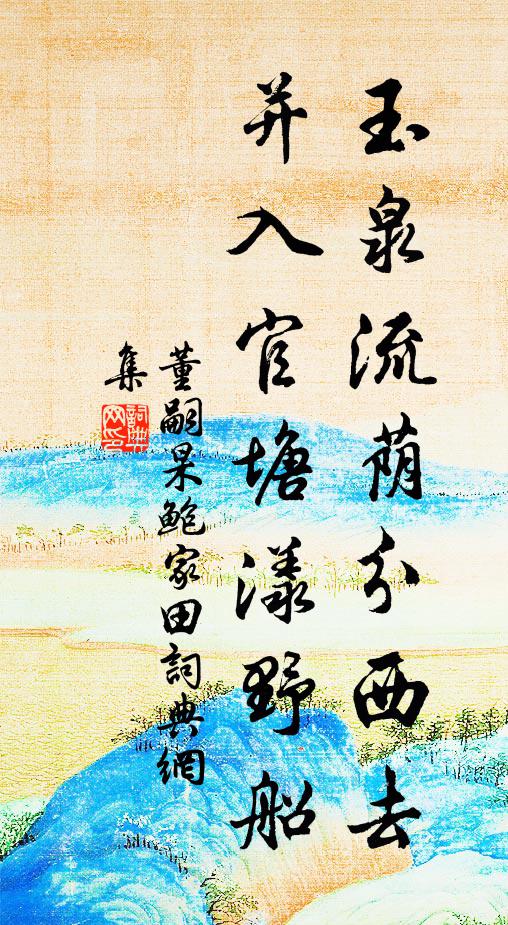 玉泉流荫分西去
并入官塘漾野船
董嗣杲鲍家田詞典網
集
詞典
网印